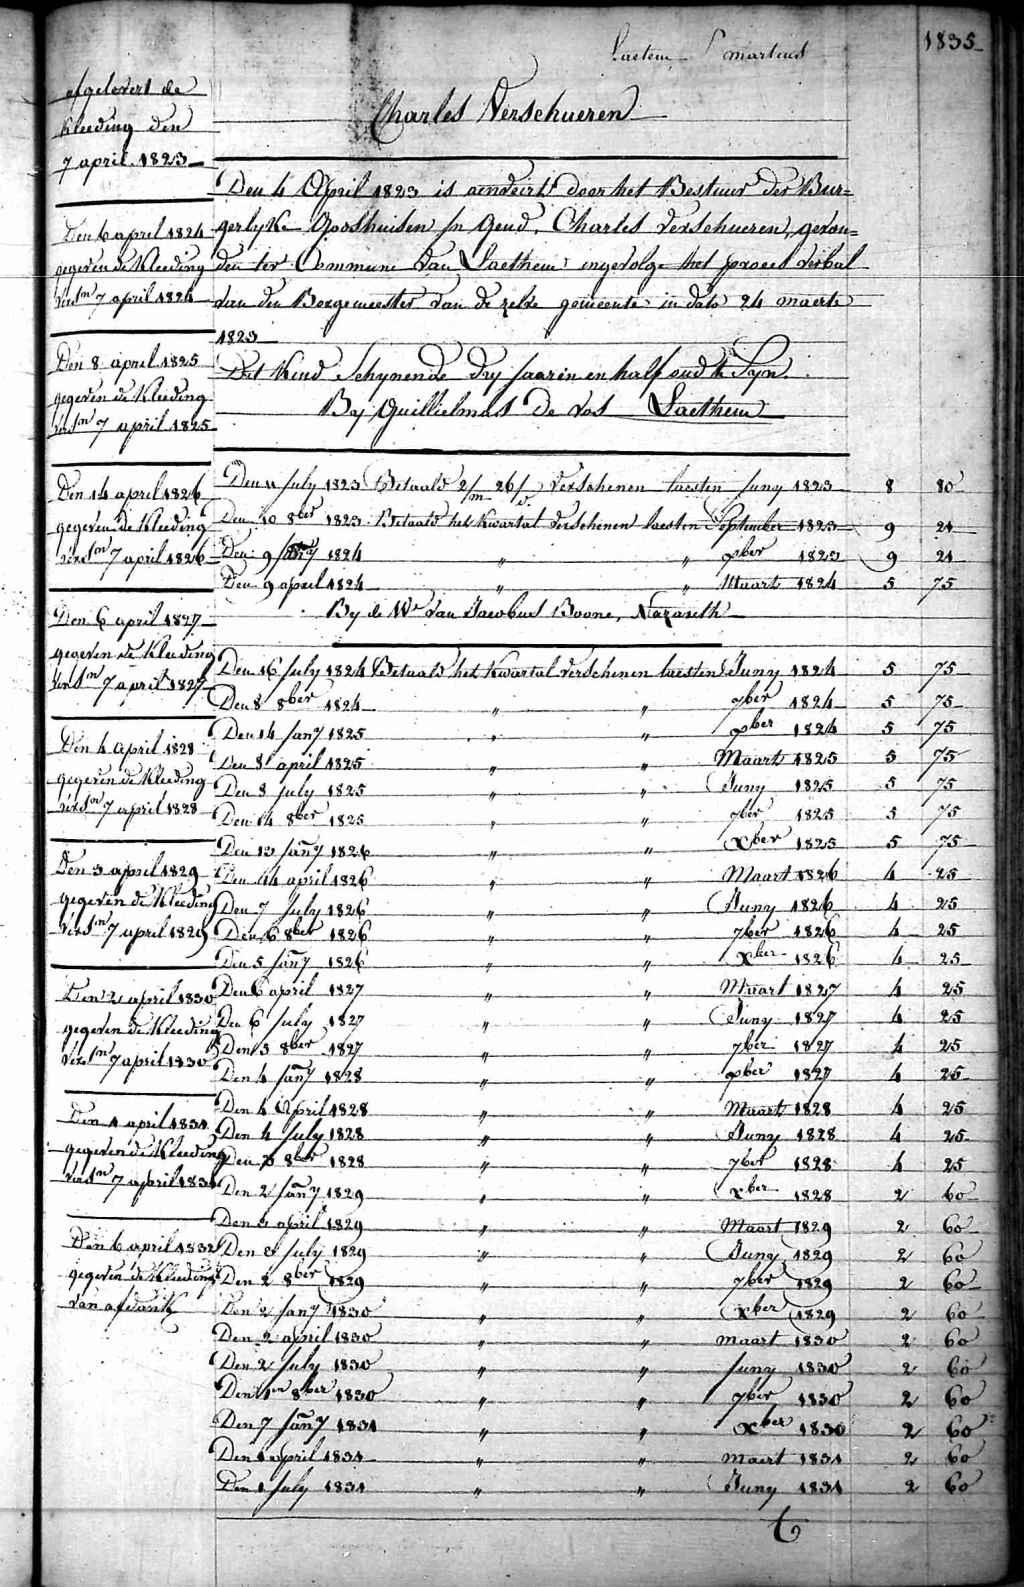 1835
Laetem St martens
Charles Verschueren
afgelevert de
kleeding den
7 april 1823
Den 6 april 1824
gegeven de Kleeding
versn 7 april 1824
Den 8 april 1825
gegeven de Kleeding
versn 7 april 1825
Den 14 april 1826
gegeven de Kleeding
versn 7 april 1826
Den 6 april 1827
gegeven de Kleeding
versn 7 april 1827
Den 4 april 1828
gegeven de Kleeding
versn 7 april 1828
Den 3 april 1829
gegeven de Kleeding
versn 7 april 1829
Den 2 april 1830
gegeven de Kleeding
versn 7 april 1830
Den 1 april 1831
gegeven de Kleeding
versn 7 april 1831
Den 6 april 1832
gegeven de Kleeding
van afdank
Den 4 April 1823 is aenveirt door het Bestuur der Bur=
gerlyke Godshuisen in Gend, Charles Verschueren, gevon=
den ter Commune van Laethem ingevolge het proces verbal
van den Borgemeester van de zelve gemeente in dato 24 maerte
1823
Dit kind schynende dry jaar en en half oud te Syn.
By Guillielmus De vos Laethem
Den 11 july 1823 Betaald 2/m 26/d verschenen laesten juny 1823 8 80
Den 10 8ber 1823 Betaald het kwartal verschenen laesten September 1823 9 21
Den 9 jany 1824 " " xber 1823 9 21
Den 9 april 1824 " " Maart 1824 5 75
By de We van Jacobus Boone, Nazareth
Den 16 july 1824 Betaald het kwartal verschenen laesten Juny 1824 5 75
Den 8 8ber 1824 " " 7ber 1824 5 75
Den 14 jany 1825 " " xber 1824 5 75
Den 8 april 1825 " " Maart 1825 5 75
Den 8 july 1825 " " Juny 1825 5 75
Den 14 8ber 1825 " " 7ber 1825 5 75
Den 13 jany 1826 " " xber 1825 5 75
Den 14 april 1826 " " Maart 1826 4 25
Den 7 july 1826 " " Juny 1826 4 25
Den 6 8ber 1826 " " 7ber 1826 4 25
Den 5 jany 1826 " " xber 1826 4 25
Den 6 april 1827 " " Maart 1827 4 25
Den 6 july 1827 " " Juny 1827 4 25
Den 5 8ber 1827 " " 7ber 1827 4 25
Den 4 jany 1828 " " xber 1827 4 25
Den 4 April 1828 " " Maart 1828 4 25
Den 4 july 1828 " " Juny 1828 4 25
Den 8ber 1828 " " 7ber 1828 4 25
Den 2 jany 1829 " " xber 1828 2 60
Den 3 april 1829 " " Maart 1829 2 60
Den july 1829 " " Juny 1829 2 60
Den 2 8ber 1829 " " 7ber 1829 2 60
Den 2 jany 1830 " " xber 1829 2 60
Den 2 april 1830 " " maart 1830 2 60
Den 2 july 1830 " " juny 1830 2 60
Den 1n 8ber 1830 " " 7ber 1830 2 60
Den 7 jany 1831 " " xber 1830 2 60
Den 1 april 1831 " " maert 1831 2 60
Den 1 july 1831 " " Juny 1831 2 60